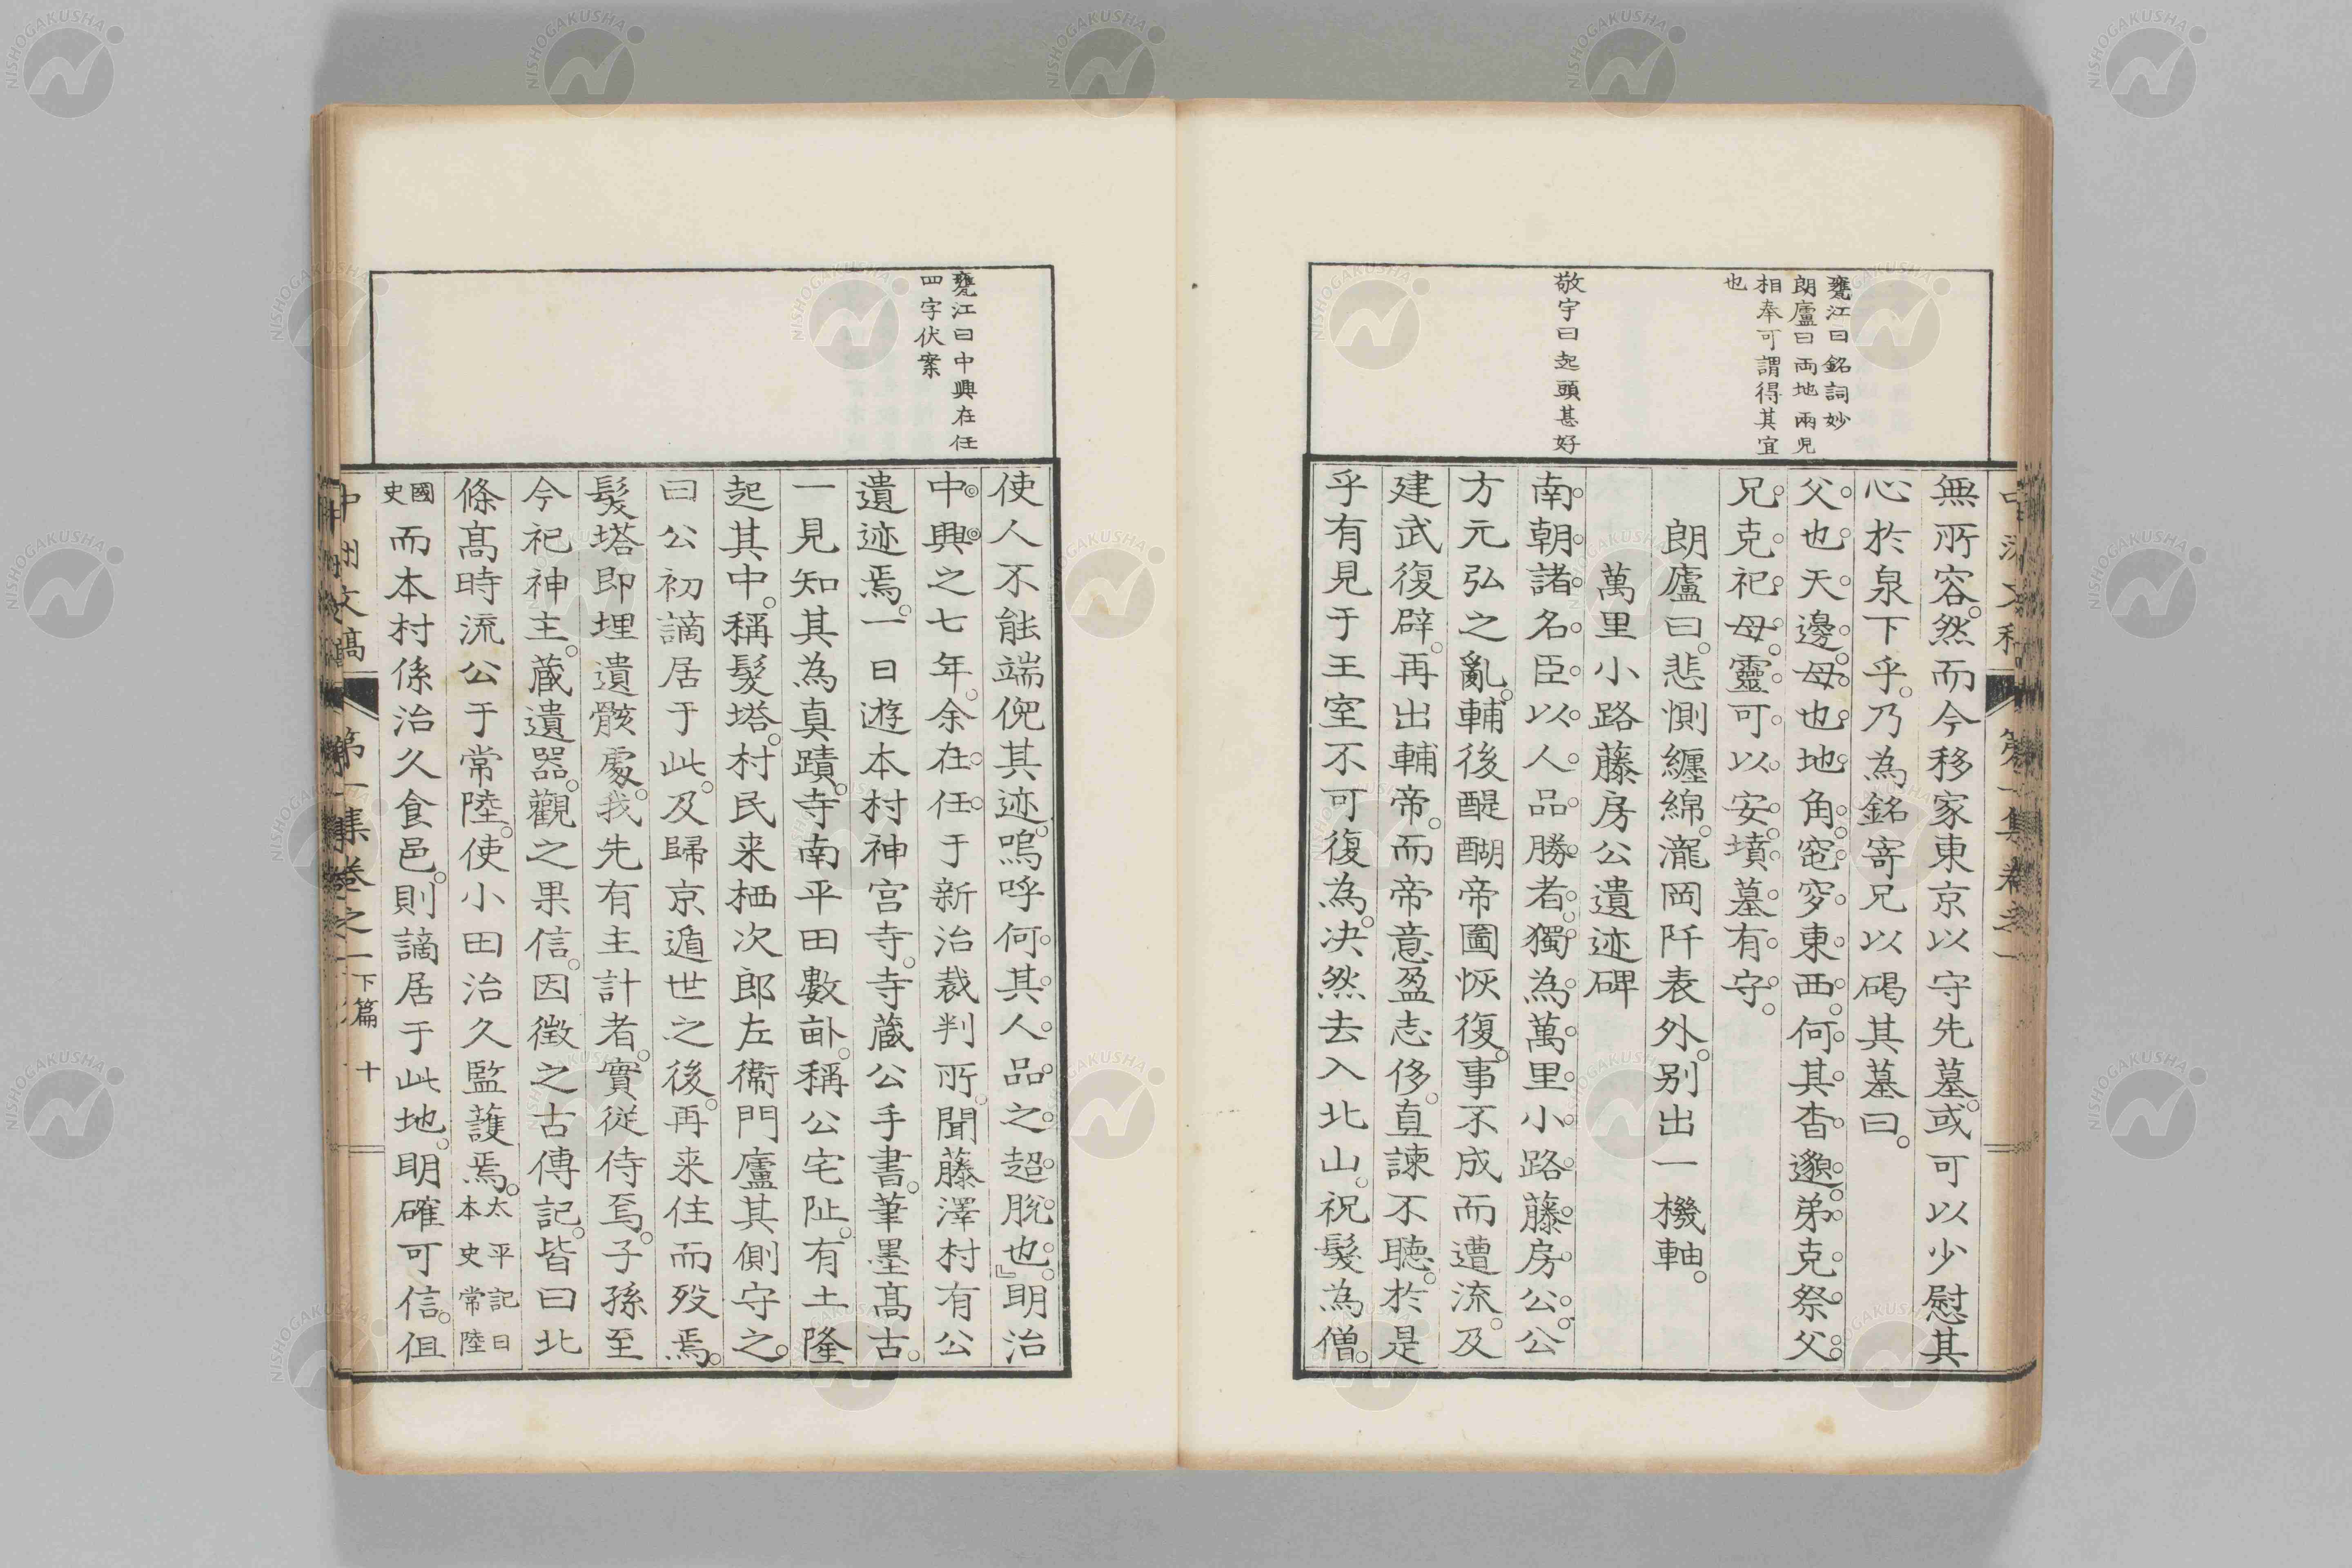 甕江曰銘詞妙
朗廬曰両地兩兄
相奉可謂得其宜
也
敬宇曰起頭甚好
無所容。然而今移家東京以守先墓。或可以少慰其
心於泉下乎。乃為銘寄兄以碣其墓曰。
父也天邊。母也地角。窀穸東西。何其杳邈。弟克祭父。
兄克祀母。靈可以安。墳墓有守。
朗廬曰。悲惻纏綿。瀧岡阡表外。別出一機軸。
萬里小路藤房公遺迹碑
南朝諸名臣。以人品勝者。獨為萬里小路藤房公。公
方元弘之亂。輔後醍醐帝圖恢復。事不成而遭流。及
建武復辟。再出輔帝。而帝意盈志侈。直諫不聴。於是
乎有見于王室不可復為。决然去入北山。祝髮為僧。
甕江曰中興在任
四字伏案
使人不能端倪其迹。嗚呼何其人品之超脫也。』明治
中興之七年。余在任于新治裁判所。聞藤澤村有公
遺迹焉。一日遊本村神宮寺。寺蔵公手書。筆墨髙古。
一見知其為真蹟。寺南平田數畝。稱公宅阯。有土隆
起其中。稱髮塔。村民来栖次郎左衛門廬其側守之。
曰公初謫居于此。及歸京遁世之後。再来住而歿焉。
髮塔即埋遺骸處。我先有主計者。實従侍焉。子孫至
今祀神主。蔵遺器。觀之果信。因徴之古傳記。皆曰北
條髙時流公于常陸。使小田治久監護焉。太平記曰本史常陸
國史而本村係治久食邑。則謫居于此地。明確可信。但
中洲文稿 第一集卷之一下篇 十